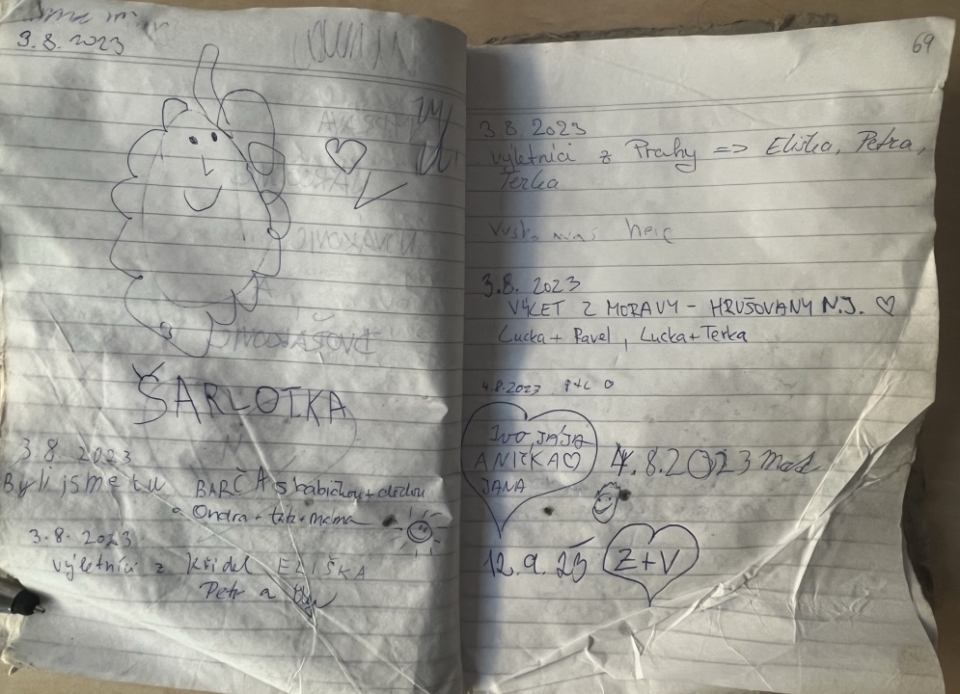 3.8.2023
ŠARLOTKA
3.8.2023
Byli jsme tu BARČA s babičkou + dědou
Ondra + táta + mama
3.8.2023
výletníci z Křídel ELIŠKA
Petr a
69
3.8.2023
výletníci z Prahy => Eliška, Petra,
Terka
3.8.2023
VÝLET Z MORAVY - HRUŠOVANY N.J. ♡
Lucka + Pavel, Lucka + Terka
4.8.2023
IVO, JÁJA
ANIČKA♡
JANA
4.8.2023
12.9.25
Z+V